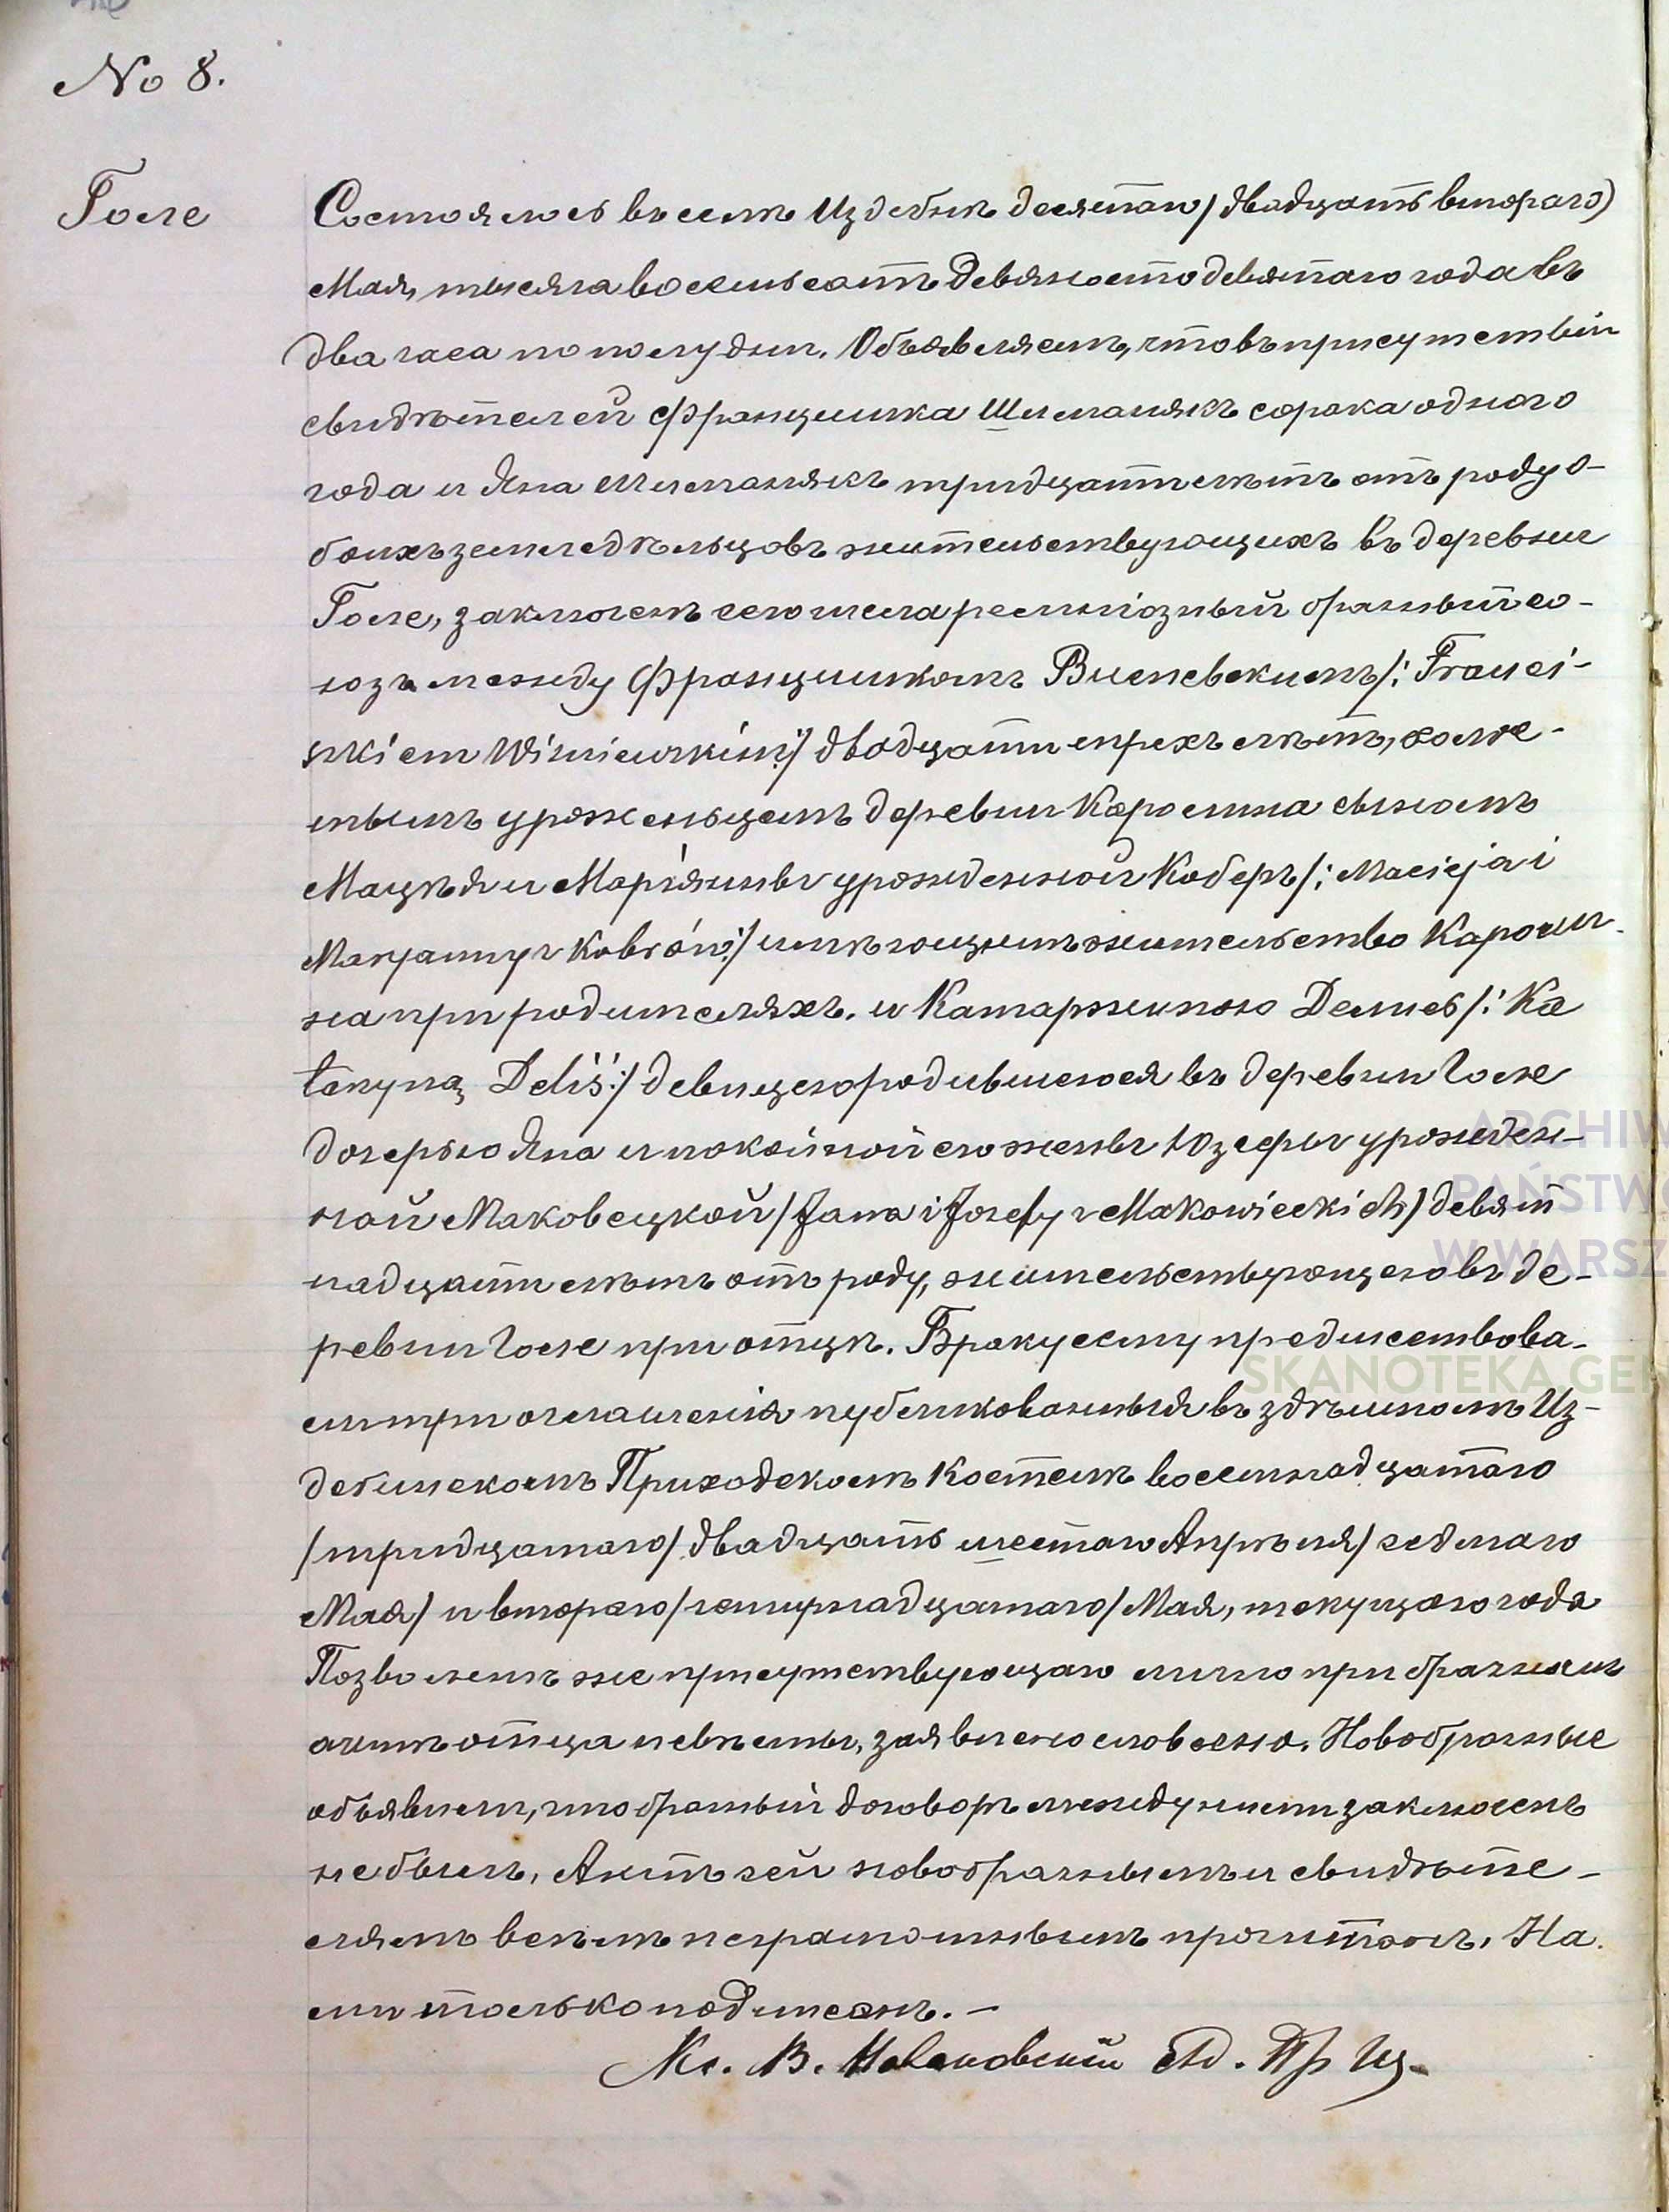 No 8.
Голе
Состоялось въ селѣ Издебнѣ десятаго /двадцать втораго/
Мая, тысяча восемьсотъ девяносто девятаго года въ
два часа по полудни. Объявляемъ, что въ присутствіи
свидѣтелей Францишка Шиманякъ сорока одного
года и Яна Шиманякъ тридцати лѣтъ отъ роду о-
боихъ земледѣльцовъ жительствующихъ въ деревни
Голе, заключенъ сего числа религіозный брачный со-
юзъ между Францишкомъ Висневскимъ /: Franci-
szkiem Wiśniewskim :/ двадцати трехъ лѣтъ, холос-
тымъ уроженьцемъ деревни Каролина сыномъ
Мацѣя и Маріянны урожденной Коберъ /: Macieja i
Maryanny z Kobrów :/ имѣющимъ жительство Кароли-
на при родителяхъ. и Катаржиною Делись /: Ka
tarzyną Deliś :/ девицею родившеюся въ деревни Голе
дочерью Яна и покойной его жены Юзефы урожден-
ной Маковецкой /Jana i Józefy z Makowieckich/ девят
надцати лѣтъ отъ роду, жительствующею въ де-
ревни Голе при отцѣ. Браку сему предшествова-
ли три оглашенія публикованныя въ здѣшномъ Из-
дебинскомъ Приходскомъ Костелѣ восемнадцатаго
/тридцатаго/ двадцать шестаго Апрѣля /седмаго
Мая/ и втораго /четырнадцатаго/ Мая, текущаго года
Позволенѣ же присутствующаго лично при брачномъ
актѣ отца невѣсты, заявлено словесно. Новобрачные
объявили, что брачный договоръ между ними заключенъ
не былъ, Актъ сей новобрачнымъ и свидѣте-
лямъ всѣмъ неграмотнымъ прочитанъ. На.
ми только подписанъ. –
Кс. В.
ARCHIW
PAŃSTWO
W WARSZ
SKANOTEKA.GEN